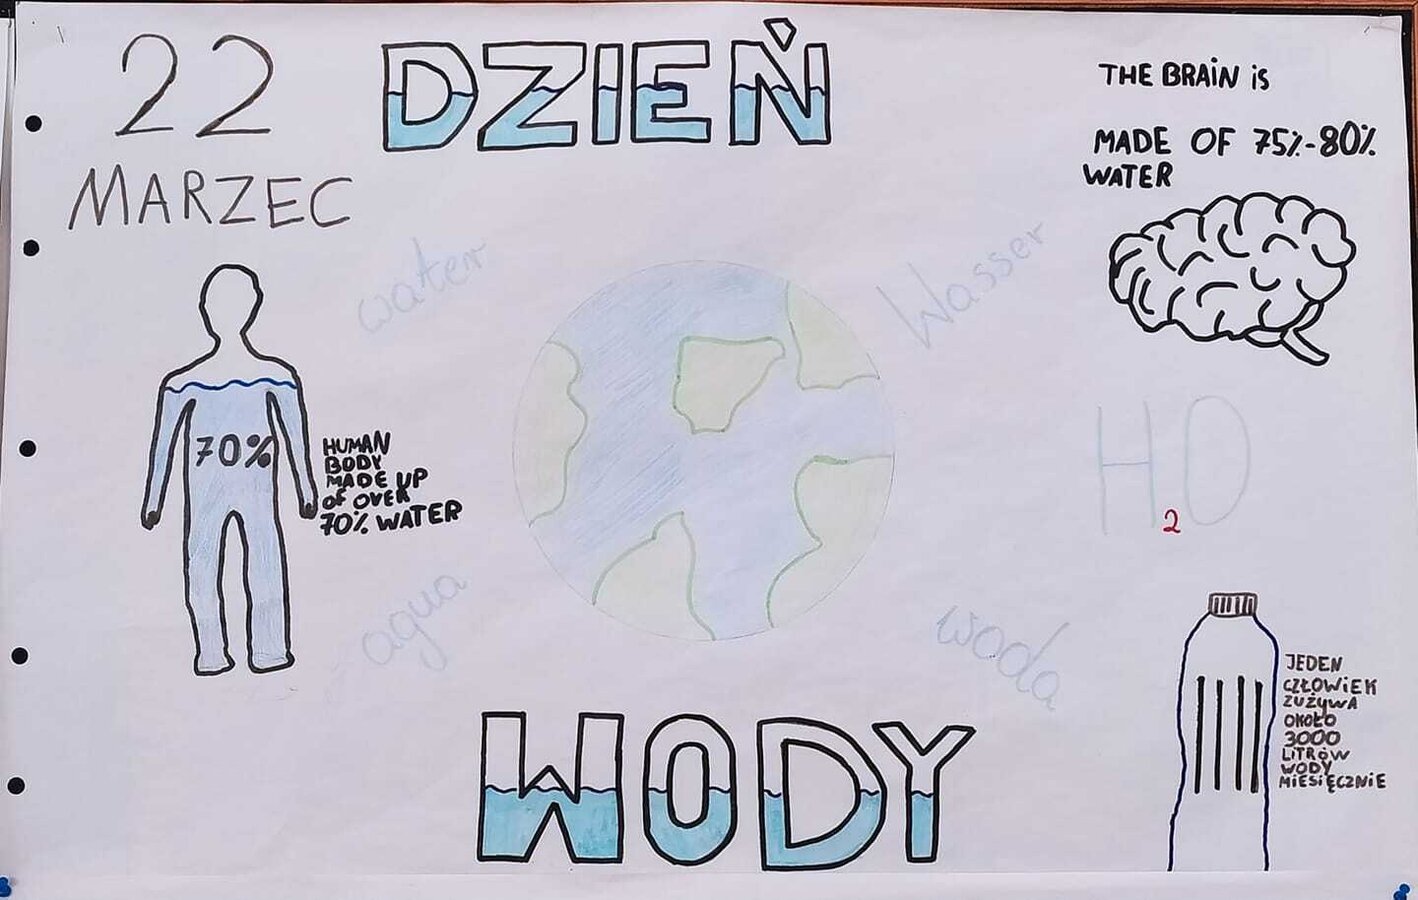 22
MARZEC
DZIEŃ
THE BRAIN is
MADE OF 75%-80%
WATER
water
Wasser
70%
HUMAN
BODY
MADE UP
OF OVER
70% WATER
H2O
agua
woda
WODY
JEDEN
CZŁOWIEK
ZUŻYWA
OKOŁO
3000
LITRÓW
WODY
MIESIĘCZNIE